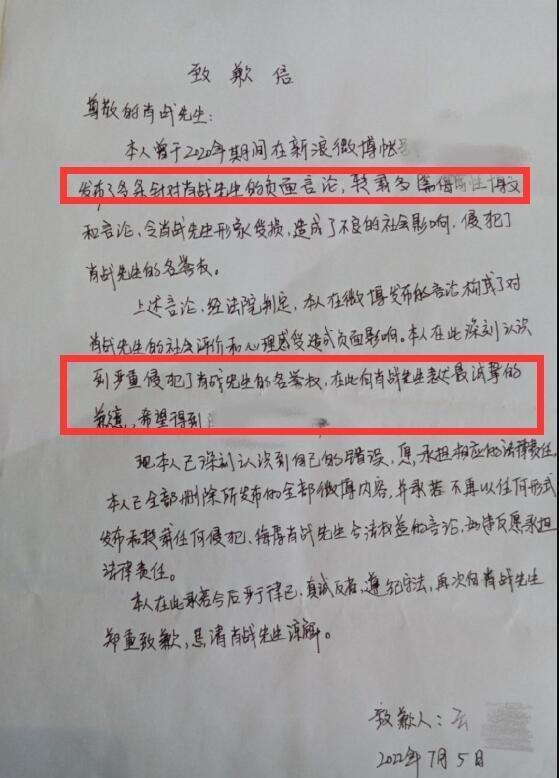 致歉信
尊敬的肖战先生：
本人曾于2020年期间在新浪微博帐
发布了多条针对肖战先生的负面言论，转载多篇侮辱性博文
和言论，令肖战先生形象受损，造成了不良的社会影响，侵犯了
肖战先生的名誉权。
上述言论，经法院判定，本人在微博发布的言论构成了对
肖战先生的社会评价和心理感受造成负面影响。本人在此深刻认识
到严重侵犯了肖战先生的名誉权，在此向肖战先生表达最诚挚的
歉意，希望得到
现本人已深刻认识到自己的错误，愿承担相应的法律责任。
本人已全部删除所发布的全部微博内容，并承若不再以任何形式
发布和转载任何侵犯、侮辱肖战先生合法权益的言论，如违反愿承担
法律责任。
本人在此承若今后严于律己，真诚反省，遵纪守法，再次向肖战先生
郑重致歉，恳请肖战先生谅解。
致歉人：云
2022年7月5日